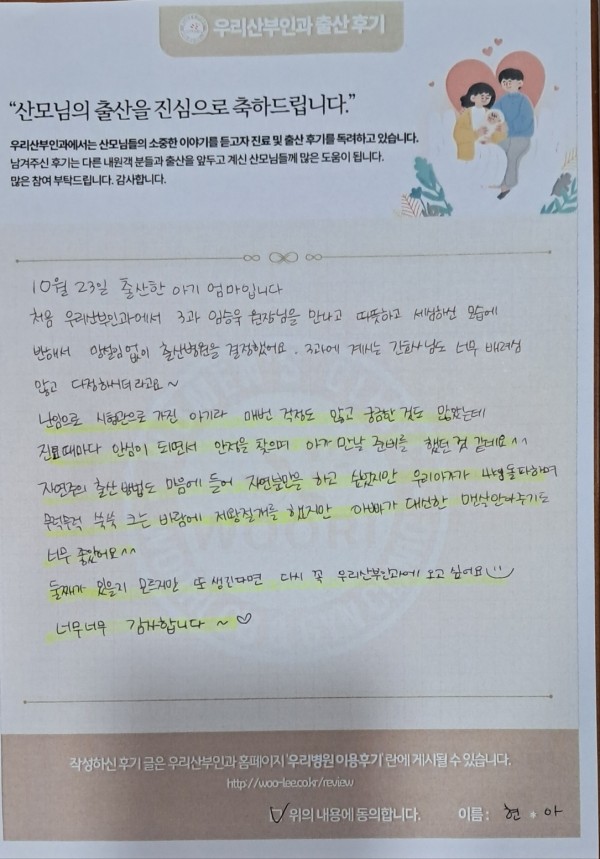 우리산부인과 출산 후기
“산모님의 출산을 진심으로 축하드립니다.”
우리산부인과에서는 산모님들의 소중한 이야기를 듣고자 진료 및 출산 후기를 독려하고 있습니다.
남겨주신 후기는 다른 내원객 분들과 출산을 앞두고 계신 산모님들께 많은 도움이 됩니다.
많은 참여 부탁드립니다. 감사합니다.
10월 23일 출산한 아기 엄마입니다
처음 우리산부인과에서 3과 임승욱 원장님을 만나고 따뜻하고 세심하신 모습에
반해서 망설임없이 출산병원을 결정했어요. 3과에 계시는 간호사님도 너무 배려심
많고 다정하시더라고요~
난임으로 시험관으로 가진 아기라 매번 걱정도 많고 궁금한 것도 많았는데
진료때마다 안심이 되면서 안정을 찾으며 아가 만날 준비를 했던것 같네요^^
자연주의 출산 방법도 마음에 들어 자연분만을 하고 싶었지만 우리아가가 4kg돌파하며
무럭무럭 쑥쑥 크는 바람에 제왕절개를 했지만 아빠가 대신한 캥거루안아주기도
너무 좋았어요^^
둘째가 있을지 모르지만 또 생긴다면 다시 꼭 우리산부인과에 오고 싶어요
너무너무 감사합니다 ~ ♡
작성하신 후기 글은 우리산부인과 홈페이지 '우리병원 이용후기' 란에 게시될 수 있습니다.
http://woo-lee.co.kr/review
위의 내용에 동의합니다. 이름 : 현 * 아
WOORI